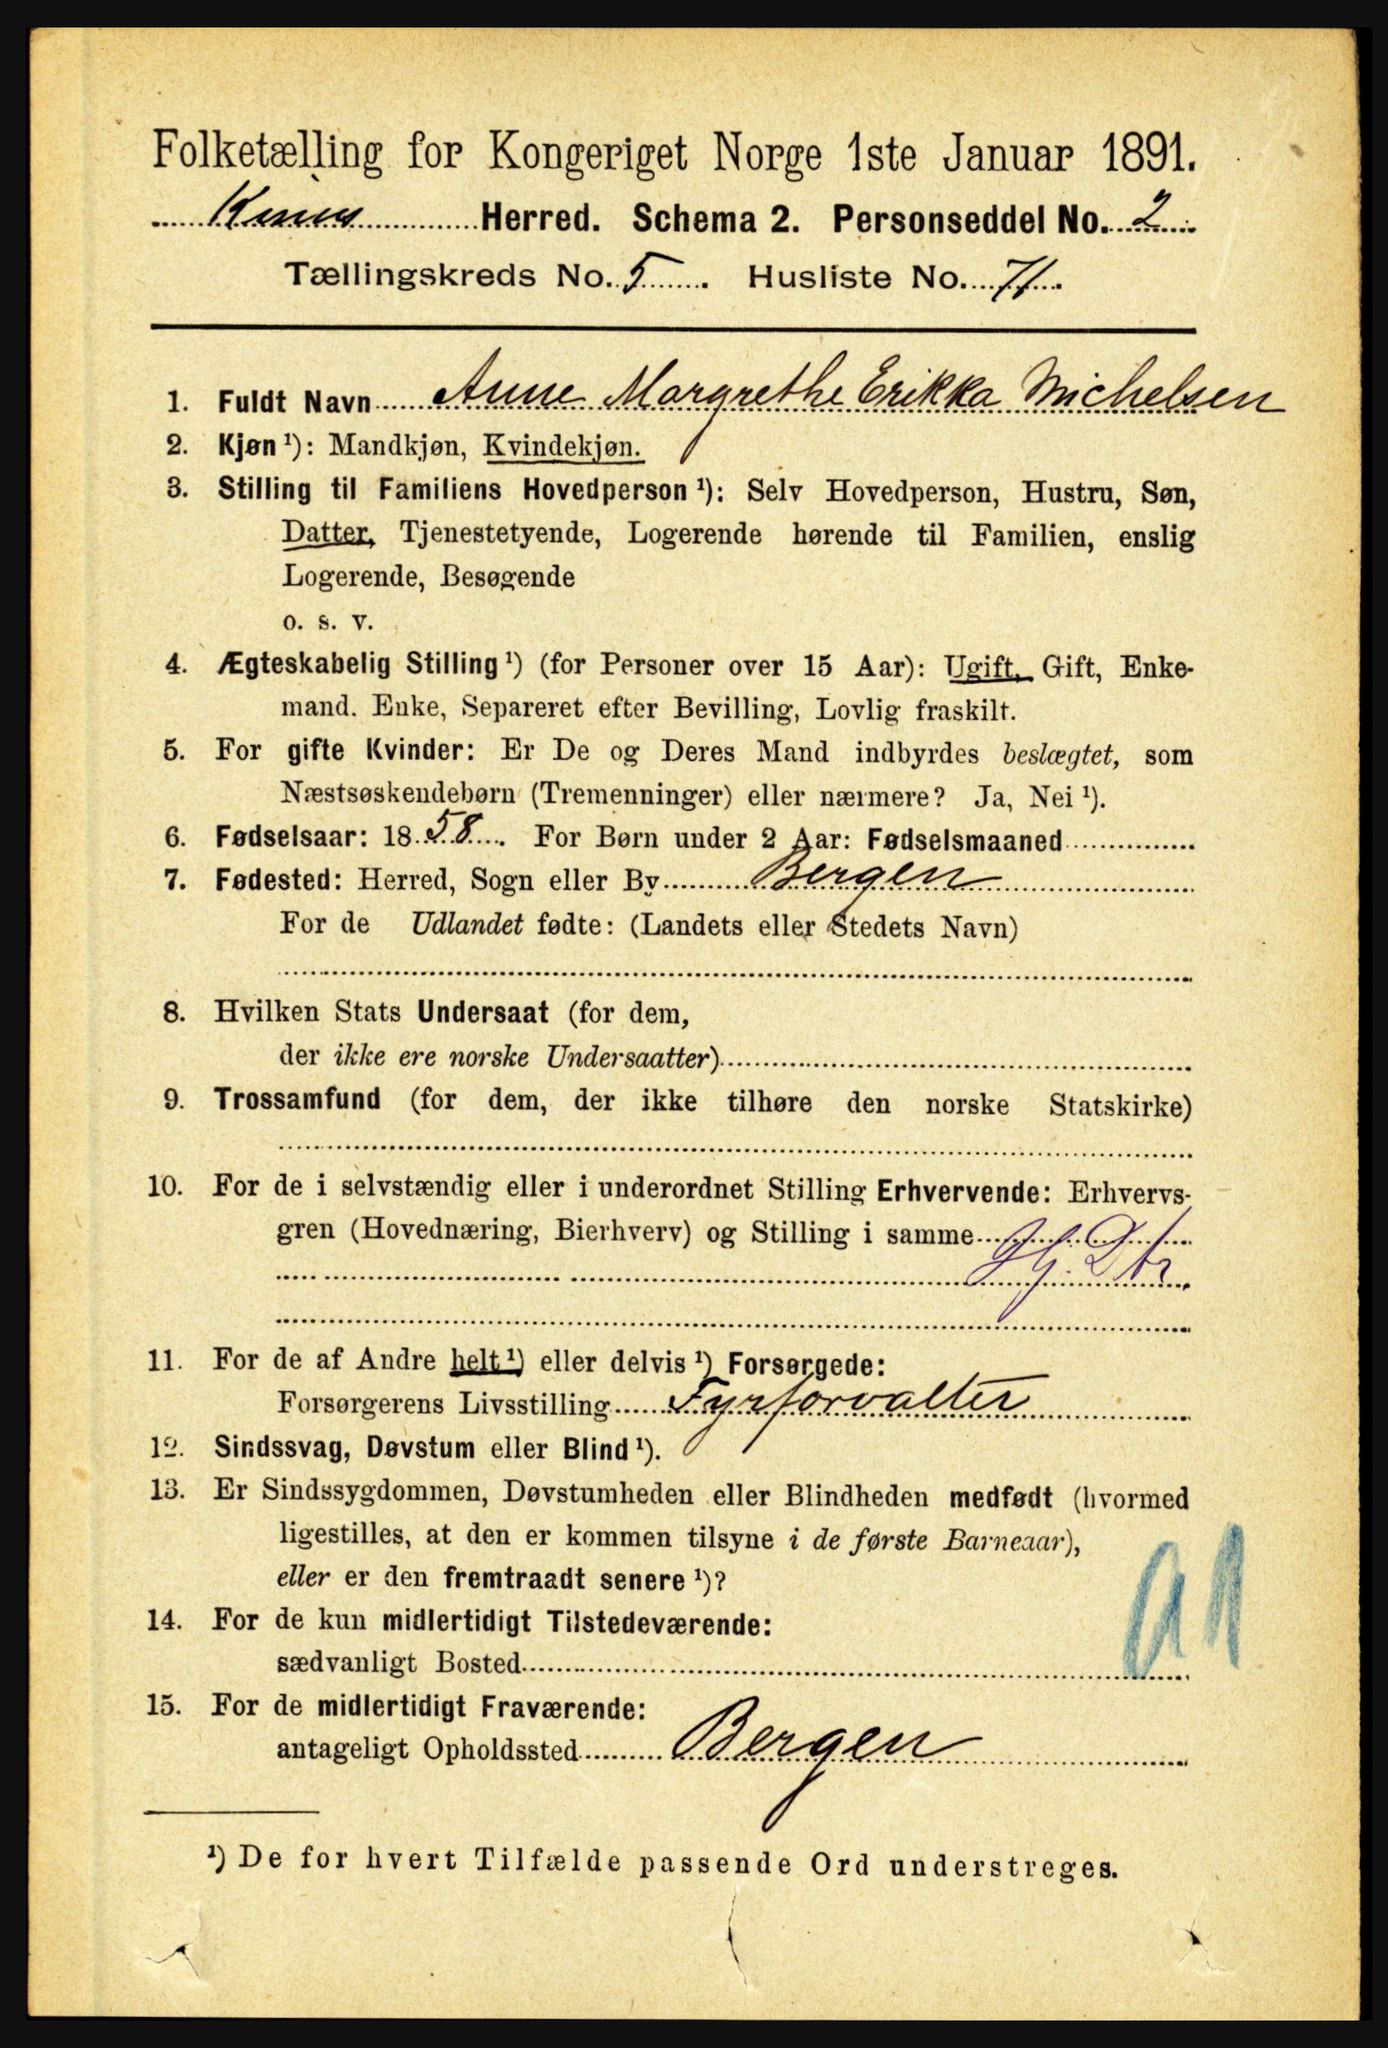 Folketælling for Kongeriget Norge 1ste Januar 1891.
Kinn Herred. Schema 2. Personseddel No. 2.
Tællingskreds No. 5. Husliste No. 71.
1. Fuldt Navn Anne Margrethe Erikka Michelsen
2. Kjøn ¹): Mandkjøn, Kvindekjøn.
3. Stilling til Familiens Hovedperson ¹): Selv Hovedperson, Hustru, Søn,
Datter, Tjenestetyende, Logerende hørende til Familien, enslig
Logerende, Besøgende
o. s. v.
4. Ægteskabelig Stilling ¹) (for Personer over 15 Aar): Ugift, Gift, Enke-
mand. Enke, Separeret efter Bevilling, Lovlig fraskilt.
5. For gifte Kvinder: Er De og Deres Mand indbyrdes beslægtet, som
Næstsøskendebørn (Tremenninger) eller nærmere? Ja, Nei ¹).
6. Fødselsaar: 1858. For Børn under 2 Aar: Fødselsmaaned
7. Fødested: Herred, Sogn eller By Bergen
For de Udlandet fødte: (Landets eller Stedets Navn)
8. Hvilken Stats Undersaat (for dem,
der ikke ere norske Undersaatter)
9. Trossamfund (for dem, der ikke tilhøre den norske Statskirke)
10. For de i selvstændig eller i underordnet Stilling Erhvervende: Erhvervs-
gren (Hovednæring, Bierhverv) og Stilling i samme
Hj. Dtr.
11. For de af Andre helt ¹) eller delvis ¹) Forsørgede:
Forsørgerens Livsstilling Fyrforvalter
12. Sindssvag, Døvstum eller Blind ¹).
13. Er Sindssygdommen, Døvstumheden eller Blindheden medfødt (hvormed
ligestilles, at den er kommen tilsyne i de første Barneaar),
eller er den fremtraadt senere ¹)?
14. For de kun midlertidigt Tilstedeværende:
sædvanligt Bosted
15. For de midlertidigt Fraværende:
antageligt Opholdssted Bergen
¹) De for hvert Tilfælde passende Ord understreges.